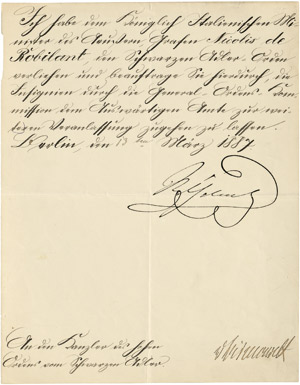 Ich habe dem Königlich Italienischen Mi-
nister des Äussern Grafen Nicolis de
Robilant, den Schwarzen Adler-Orden
verliehen und beauftrage Sie hierdurch, die
Insignien durch die General-Ordens-Kom-
mission dem Auswärtigen Amte zur wei-
teren Veranlassung zugehen zu lassen.
Berlin, den 13ten März 1887.
Wilhelm
An den Kanzler des hohen
Ordens vom Schwarzen Adler.